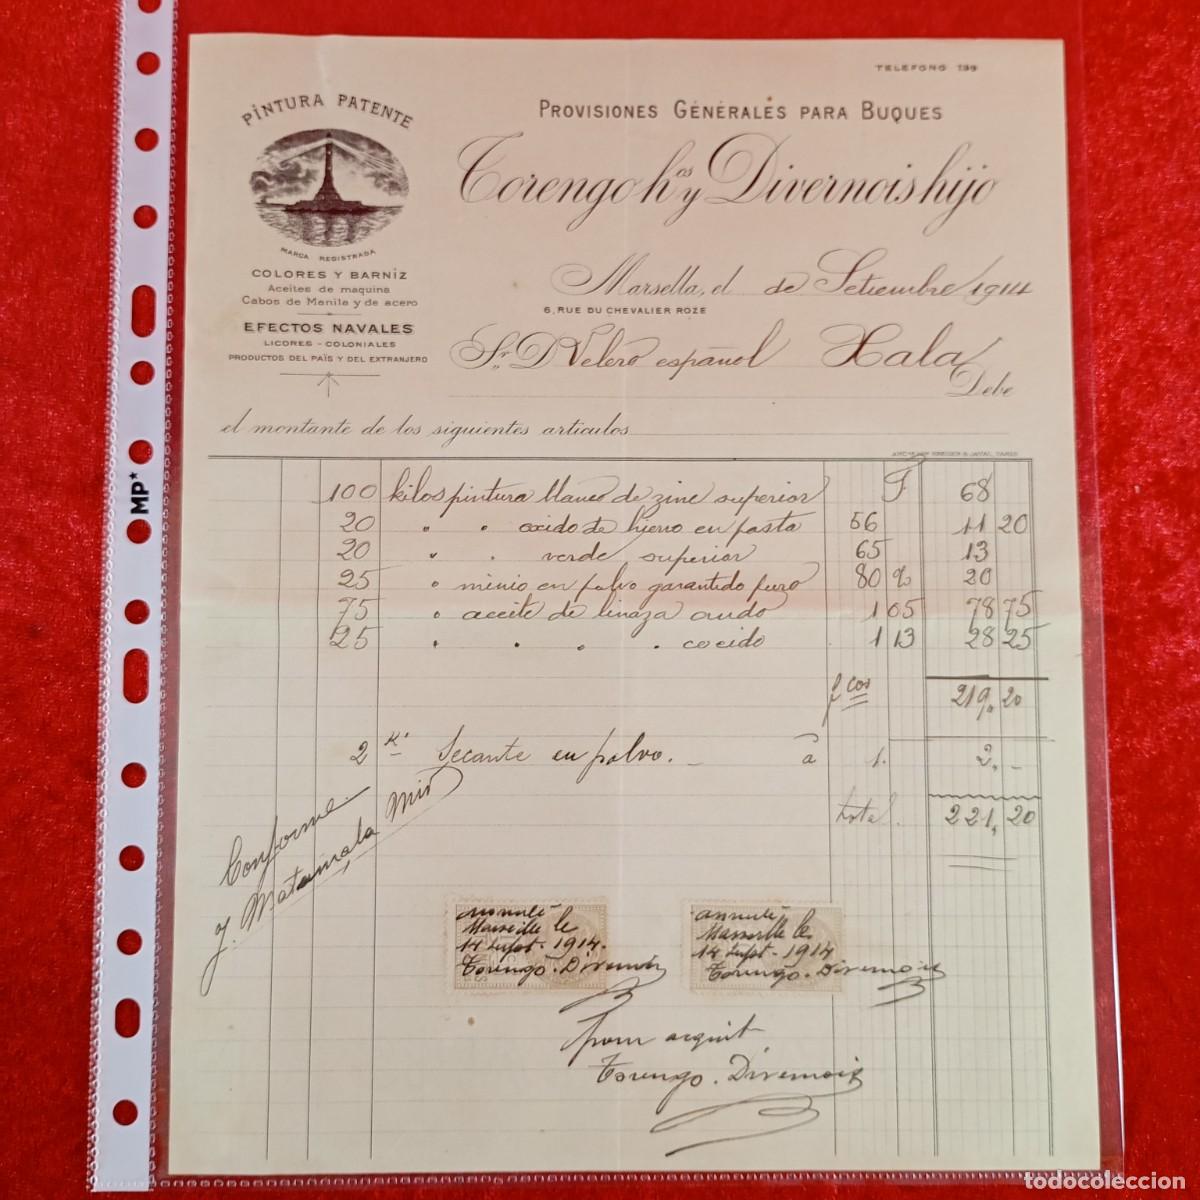 TELEFONO 739
PINTURA PATENTE
PROVISIONES GÉNÉRALÉS PARA BUQUES
Torengo hos y Divernois hijo
MARCA REGISTRADA
COLORES Y BARNIZ
Aceites de maquina
Cabos de Manila y de acero
EFECTOS NAVALES
LICORES - COLONIALES
PRODUCTOS DEL PAIS Y DEL EXTRANJERO
Marsella, el de Setiembre 1914
6, RUE DU CHEVALIER ROZE
Sr. D Velero español Xala
Debe
el montante de los siguientes articulos
100 kilos pintura blanco de zinc superior F 68
20 " " oxido de hierro en pasta 56 11 20
20 " " verde superior 65 13
25 " minio en polvo garantido puro 80 % 20
75 " aceite de linaza crudo 1 05 78 75
25 " " " " cocido 1 13 28 25
fcos 219,20
2 Ks Secante en polvo. - à 1. 2,-
total. 221,20
Conforme
J. Matamala Mir
annulé
Marseille le
14 Sept. 1914.
Torengo. Divernois
annulé
Marseille le
14 Sept. 1914
Torengo. Divernois
pour acquit
Torengo. Divernois
MP*
todocoleccion